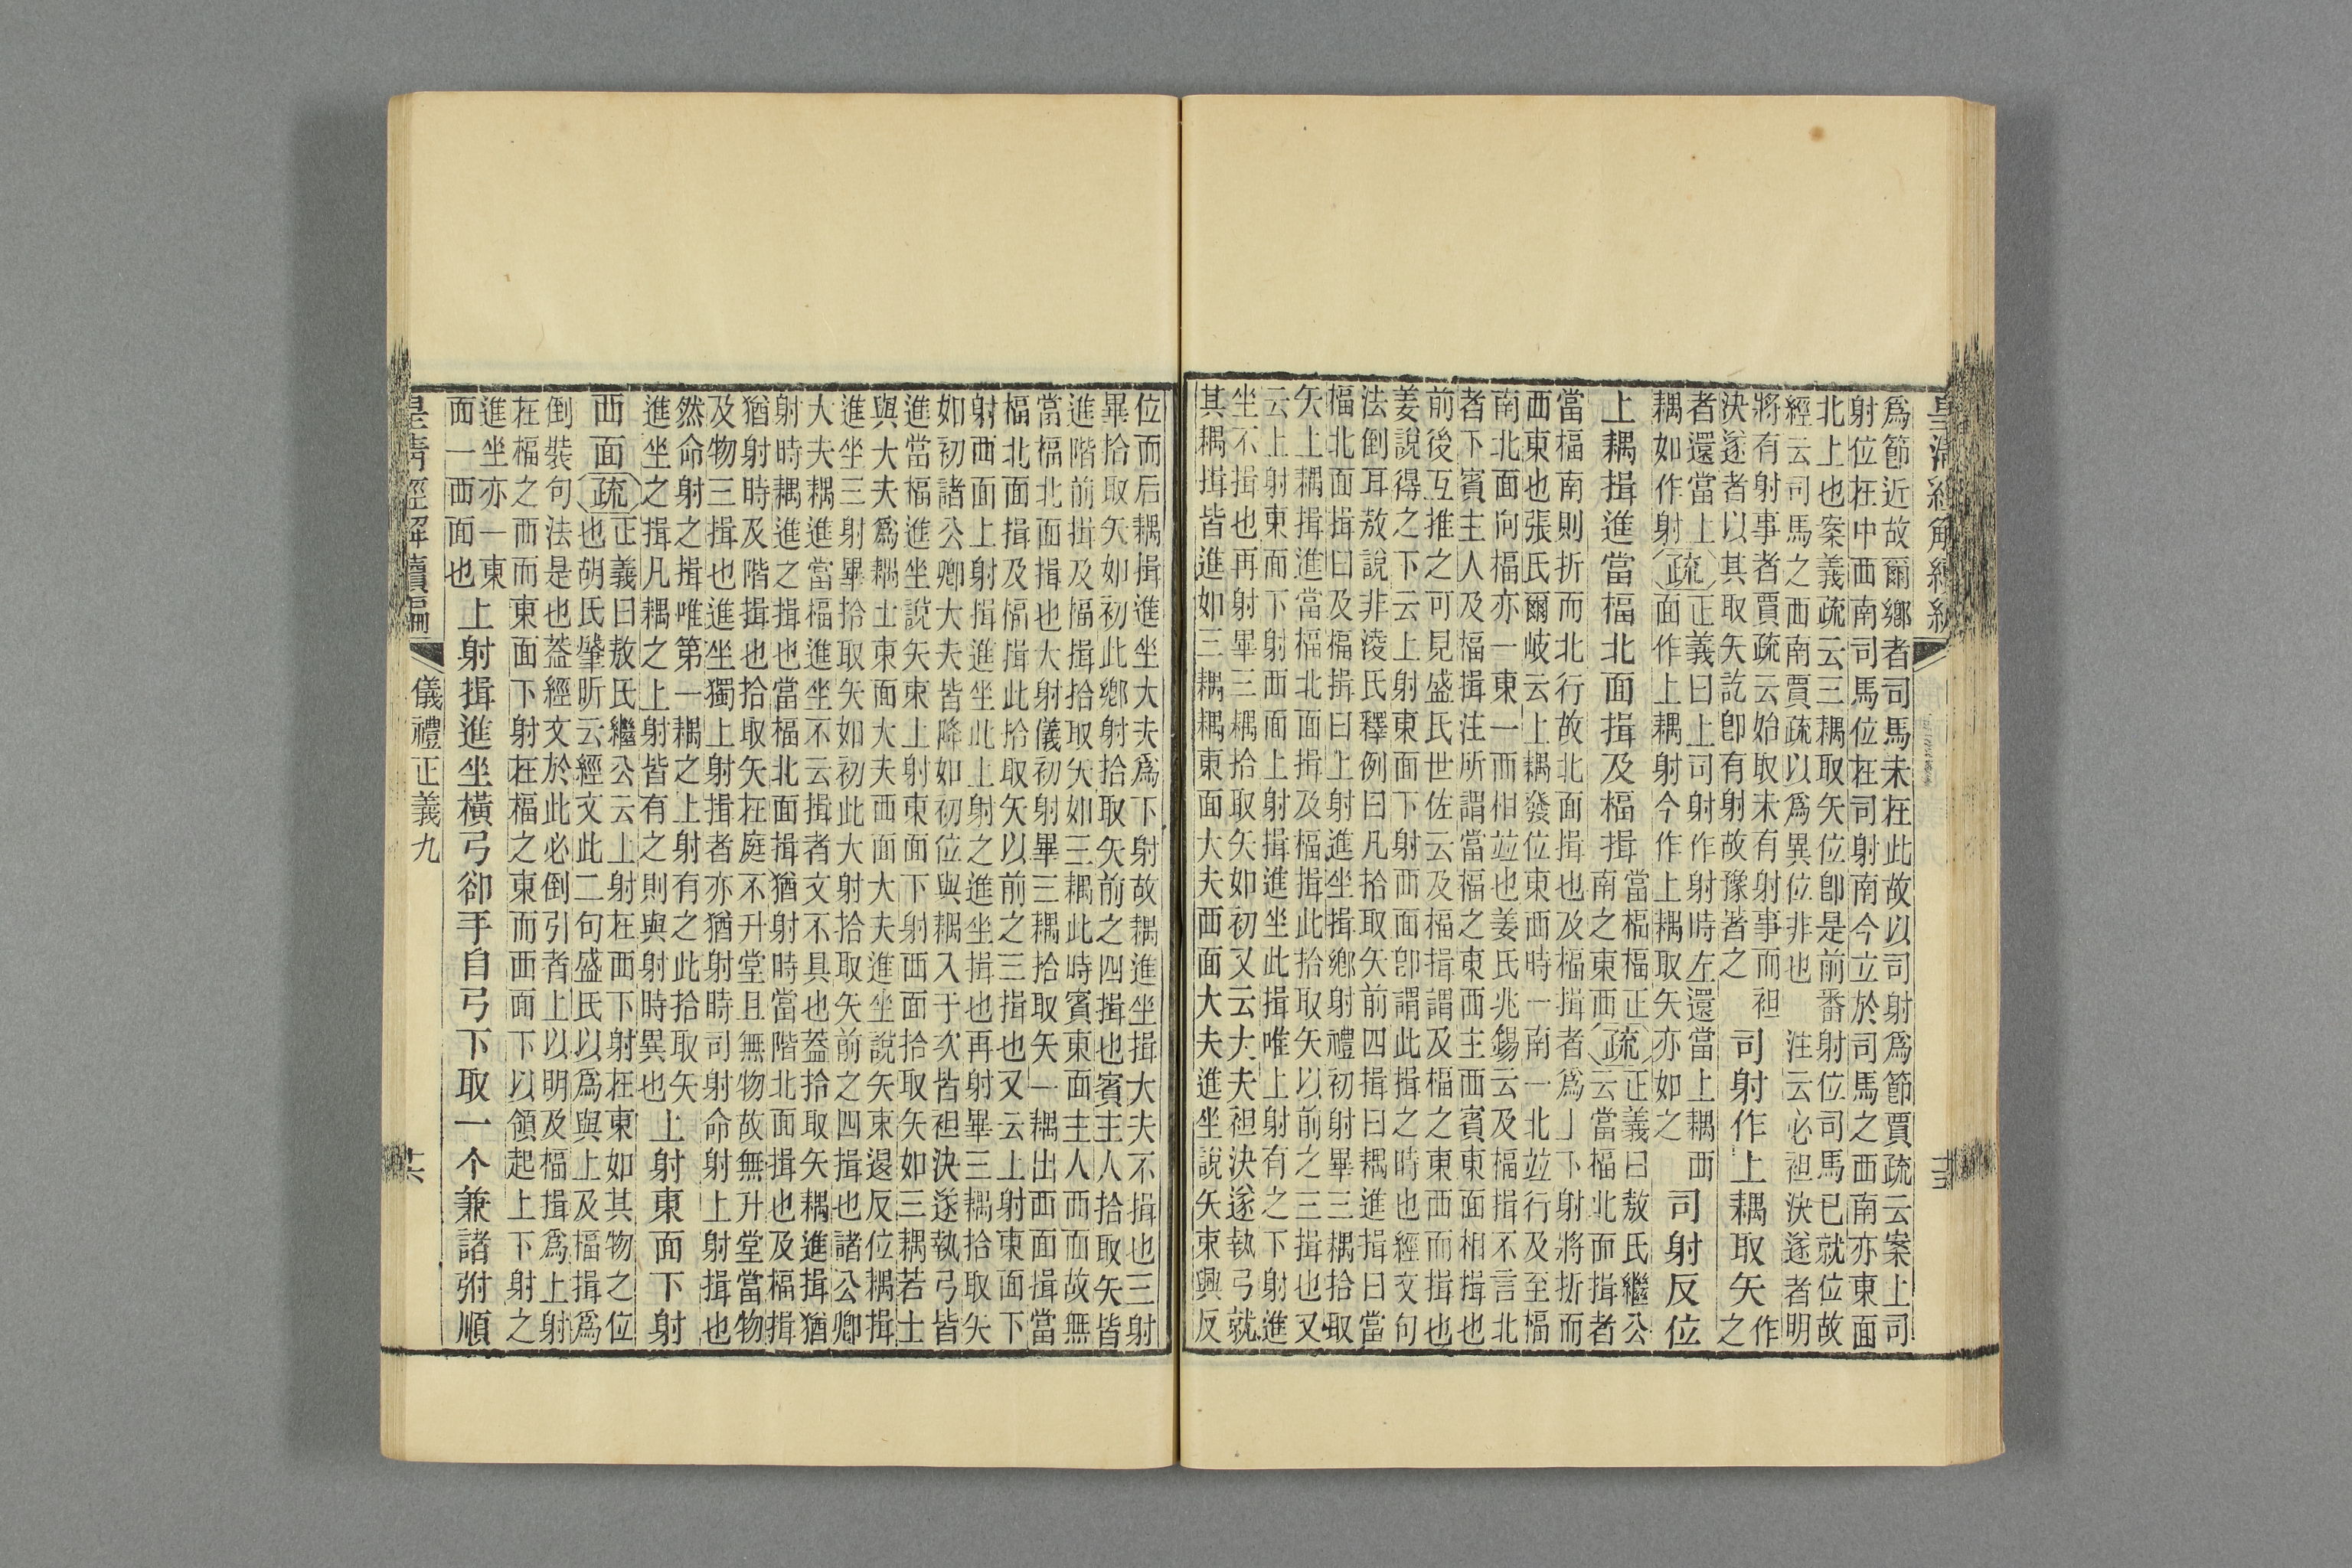 為節近故爾鄉者司馬未在此故以司射為節賈疏云案上司
射位在中西南司馬位在司射南今立於司馬之西南亦東面
北上也案義疏云三耦取矢位卽是前番射位司馬已就位故
經云司馬之西南賈疏以為異位非也注云必袒決遂者明
將有射事者賈疏云始取未有射事而袒
決遂者以其取矢訖卽有射故豫著之
司射作上耦取矢作
之
者還當上
耦如作射疏正義曰上司射作射時左還當上耦西
面作上耦射今作上耦取矢亦如之
司射反位
上耦揖進當楅北面揖及楅揖當楅楅正
南之東西疏正義曰敖氏繼公
云當楅北面揖者
當楅南則折而北行故北面揖也及楅揖者為上下射將折而
西東也張氏爾岐云上耦發位東西時一南一北竝行及至楅
南北面向楅亦一東一西相竝也姜氏兆錫云及楅揖不言北
者下賓主人及楅揖注所謂當楅之東西主西賓東面相揖也
前後互推之可見盛氏世佐云及楅揖謂及楅之東西而揖也
姜說得之下云上射東面下射西面卽謂此揖之時也經文句
法倒耳敖說非淩氏釋例曰凡拾取矢前四揖曰耦進揖曰當
楅北面揖曰及楅揖曰上射進坐揖鄉射禮初射畢三耦拾取
矢上耦揖進當楅北面揖及楅揖此拾取矢以前之三揖也又
云上射東面下射西面上射揖進坐此揖唯上射有之下射進
坐不揖也再射畢三耦拾取矢如初又云大夫袒決遂執弓就
其耦揖皆進如三耦耦東面大夫西面大夫進坐說矢束興反
位而后耦揖進坐大夫為下射故耦進坐揖大夫不揖也三射
畢拾取矢如初此鄉射拾取矢前之四揖也賓主人拾取矢皆
進階前揖及楅揖拾取矢如三耦此時賓東面主人西面故無
當楅北面揖也大射儀初射畢三耦拾取矢一耦出西面揖當
楅北面揖及楅揖此拾取矢以前之三揖也又云上射東面下
射西面上射揖進坐此上射之進坐揖也再射畢三耦拾取矢
如初諸公卿大夫皆降如初位與耦入于次皆袒決遂執弓皆
進當楅進坐說矢束上射東面下射西面拾取矢如三耦若士
與大夫為耦士東面大夫西面大夫進坐說矢束退反位耦揖
進坐三射畢拾取矢如初此大射拾取矢前之四揖也諸公卿
大夫耦進當楅進坐不云揖者文不具也蓋拾取矢耦進揖猶
射時耦進之揖也當楅北面揖猶射時當階北面揖也及楅揖
猶射時及階揖也拾取矢在庭不升堂且無物故無升堂當物
及物三揖也進坐獨上射揖者亦猶射時司射命射上射揖也
然命射之揖唯第一耦之上射有之此拾取矢
進坐之揖凡耦之上射皆有之則與射時異也
上射東面下射
西面疏正義曰敖氏繼公云上射在西下射在東如其物之位
也胡氏肇昕云經文此二句盛氏以為與上及楅揖為
倒裝句法是也蓋經文於此必倒引者上以明及楅揖為上射
在楅之西而東面下射在楅之東而西面下以領起上下射之
進坐亦一東
面一西面也
上射揖進坐橫弓卻手自弓下取一个兼諸弣順
皇清經解續編
儀禮正義九